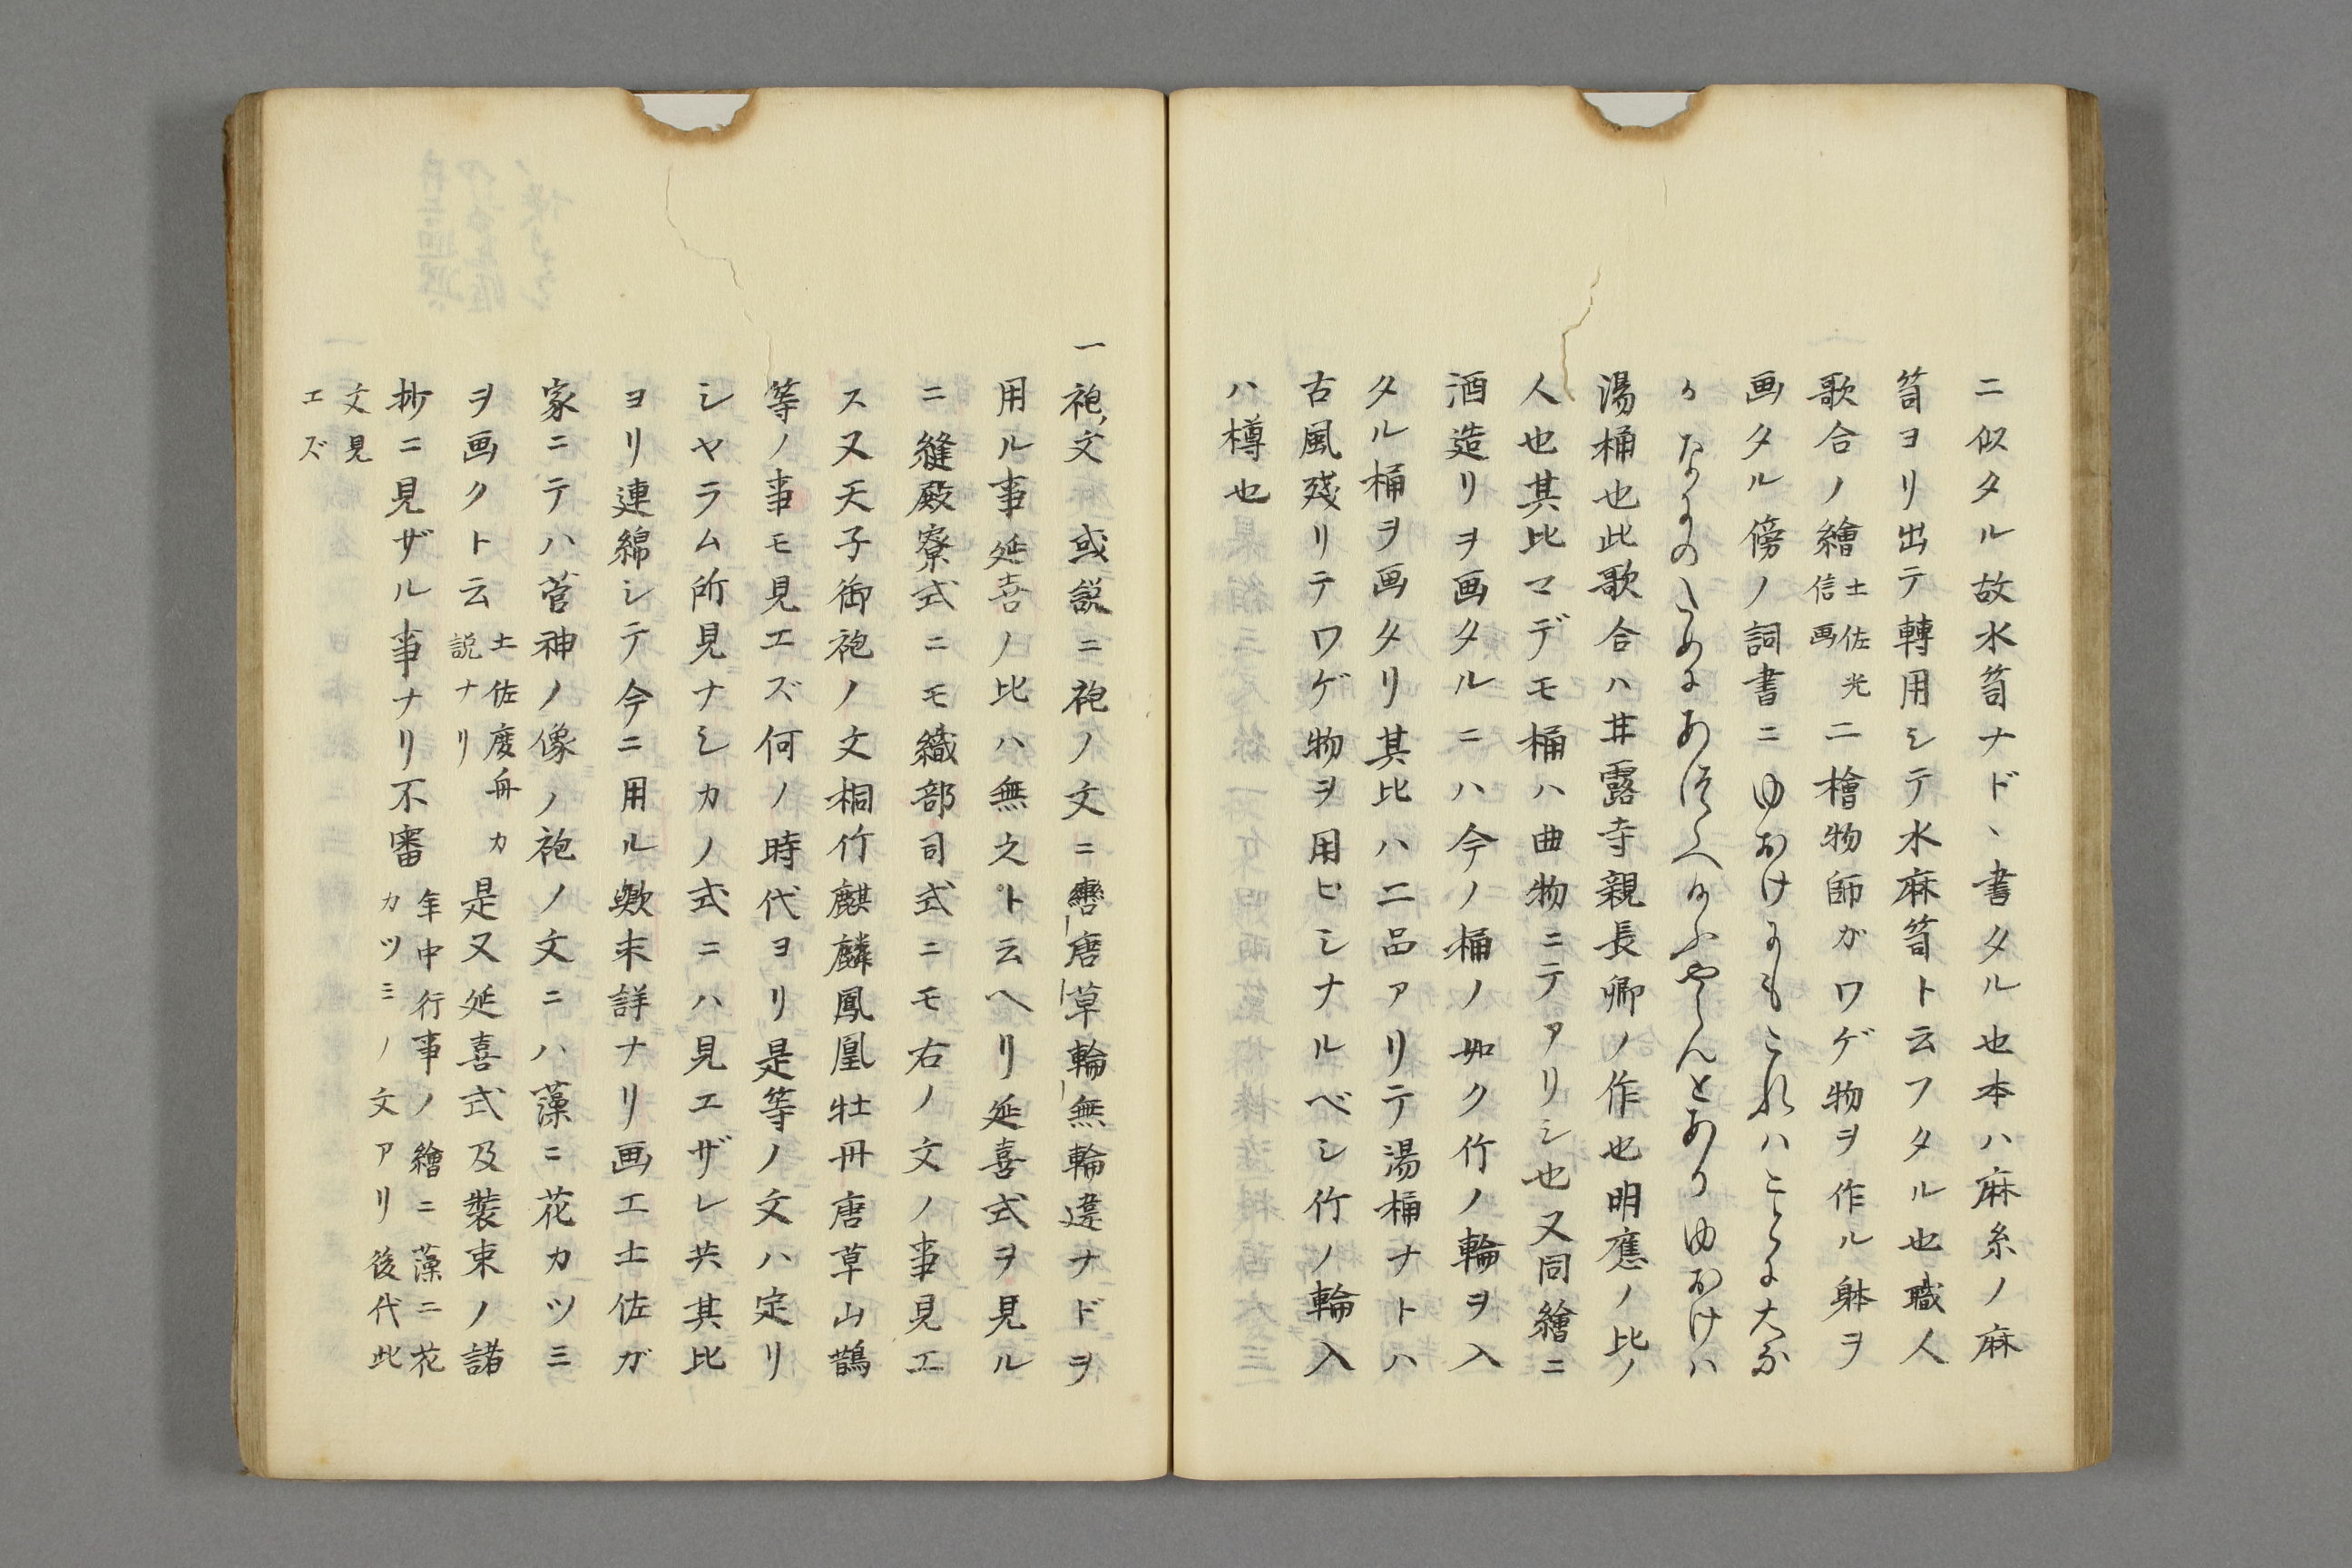 ニ似タル故水笥ナド、書タル也本ハ麻糸ノ麻
笥ヨリ出テ轉用シテ水麻笥ト云フタル也職人
歌合ノ繪土佐光信画ニ檜物師ガワゲ物ヲ作ル躰ヲ
画タル傍ノ詞書ニゆおけにもこれハことに大な
るなにのためにあつらへ給ふやらんとありゆおけハ
湯桶也此歌合ハ甘露寺親長卿ノ作也明應ノ比ノ
人也其比マデモ桶ハ曲物ニテアリシ也又同繪ニ
酒造リヲ画タルニハ今ノ桶ノ如ク竹ノ輪ヲ入
タル桶ヲ画タリ其比ハ二品アリテ湯桶ナトハ
古風殘リテワゲ物ヲ用ヒシナルベシ竹ノ輪入
ハ樽也
一袍文 或説ニ袍ノ文ニ轡唐草輪無輪違ナドヲ
用ル事延喜ノ比ハ無之ト云ヘリ延喜式ヲ見ル
ニ縫殿寮式ニモ織部司式ニモ右ノ文ノ事見エ
ス又天子御袍ノ文桐竹麒麟鳳凰牡丹唐草山鵲
等ノ事モ見エズ何ノ時代ヨリ是等ノ文ハ定リ
シヤラム所見ナシカノ式ニハ見エザレ共其比
ヨリ連綿シテ今ニ用ル歟末詳ナリ画工土佐ガ
家ニテハ菅神ノ像ノ袍ノ文ニハ藻ニ花カツミ
ヲ画クト云土佐廣舟カ説ナリ是又延喜式及装束ノ諸
抄ニ見ザル事ナリ不審年中行事ノ繪ニ藻ニ花カツミノ文アリ後代此
文見エズ